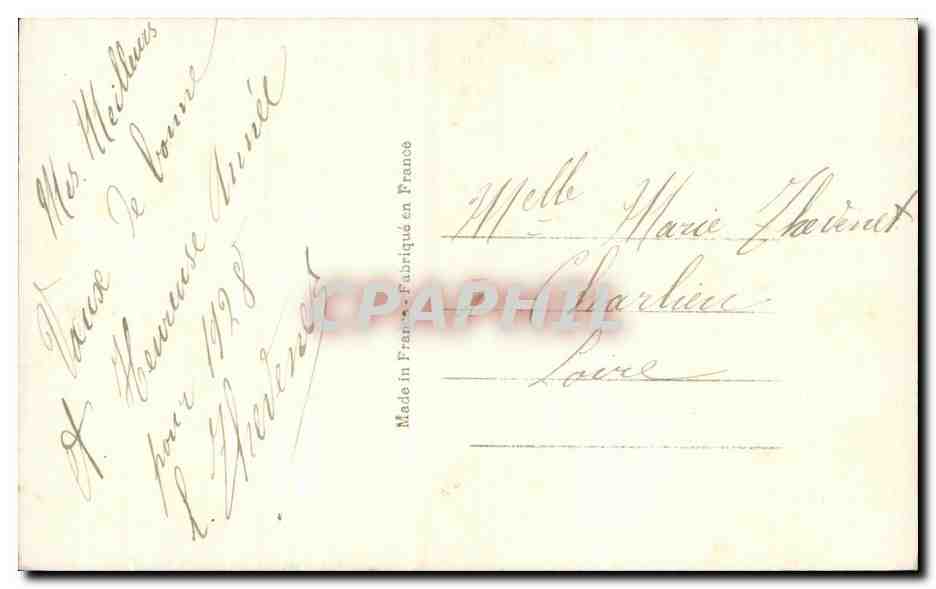 Mes Meilleurs
Vœux de bonne
& Heureuse Année
pour 1928
L. Thevenet
Made in France - Fabriqué en France
Melle Marie Thevenet
Charlieu
Loire
CPAPHIL